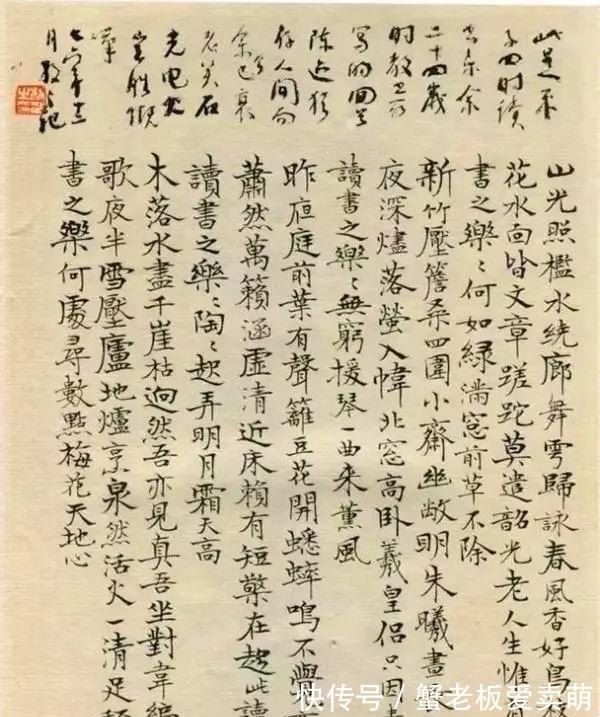 此是朱
子四时讀
書樂余
二十四歲
时教
写的回首
陈迹犹
存人间而
余已衰
老矣石
光电火
豈胜慨
嘆
七六年十二
月记
山光照檻水绕廊舞雩歸詠春風香好鳥枝
花水面皆文章蹉跎莫遣韶光老人生惟
書之樂々何如緑滿窓前草不除
新竹壓簷桑四圍小齋幽敞明朱曦晝長
夜深燼落螢入幃北窓高卧羲皇侣只因素
讀書之樂々無窮援琴一曲来薰風
昨夜庭前葉有聲籬豆花開蟋蟀鳴不覺
蕭然萬籟涵虚清近床賴有短檠在趁此讀
讀書之樂々陶々起弄明月霜天高
木落水盡千崖枯迥然吾亦見真吾坐對韋編
歌夜半雪壓廬地爐烹泉然活火一清足稱
書之樂何處尋數點梅花天地心
快传号/蟹老板爱卖萌